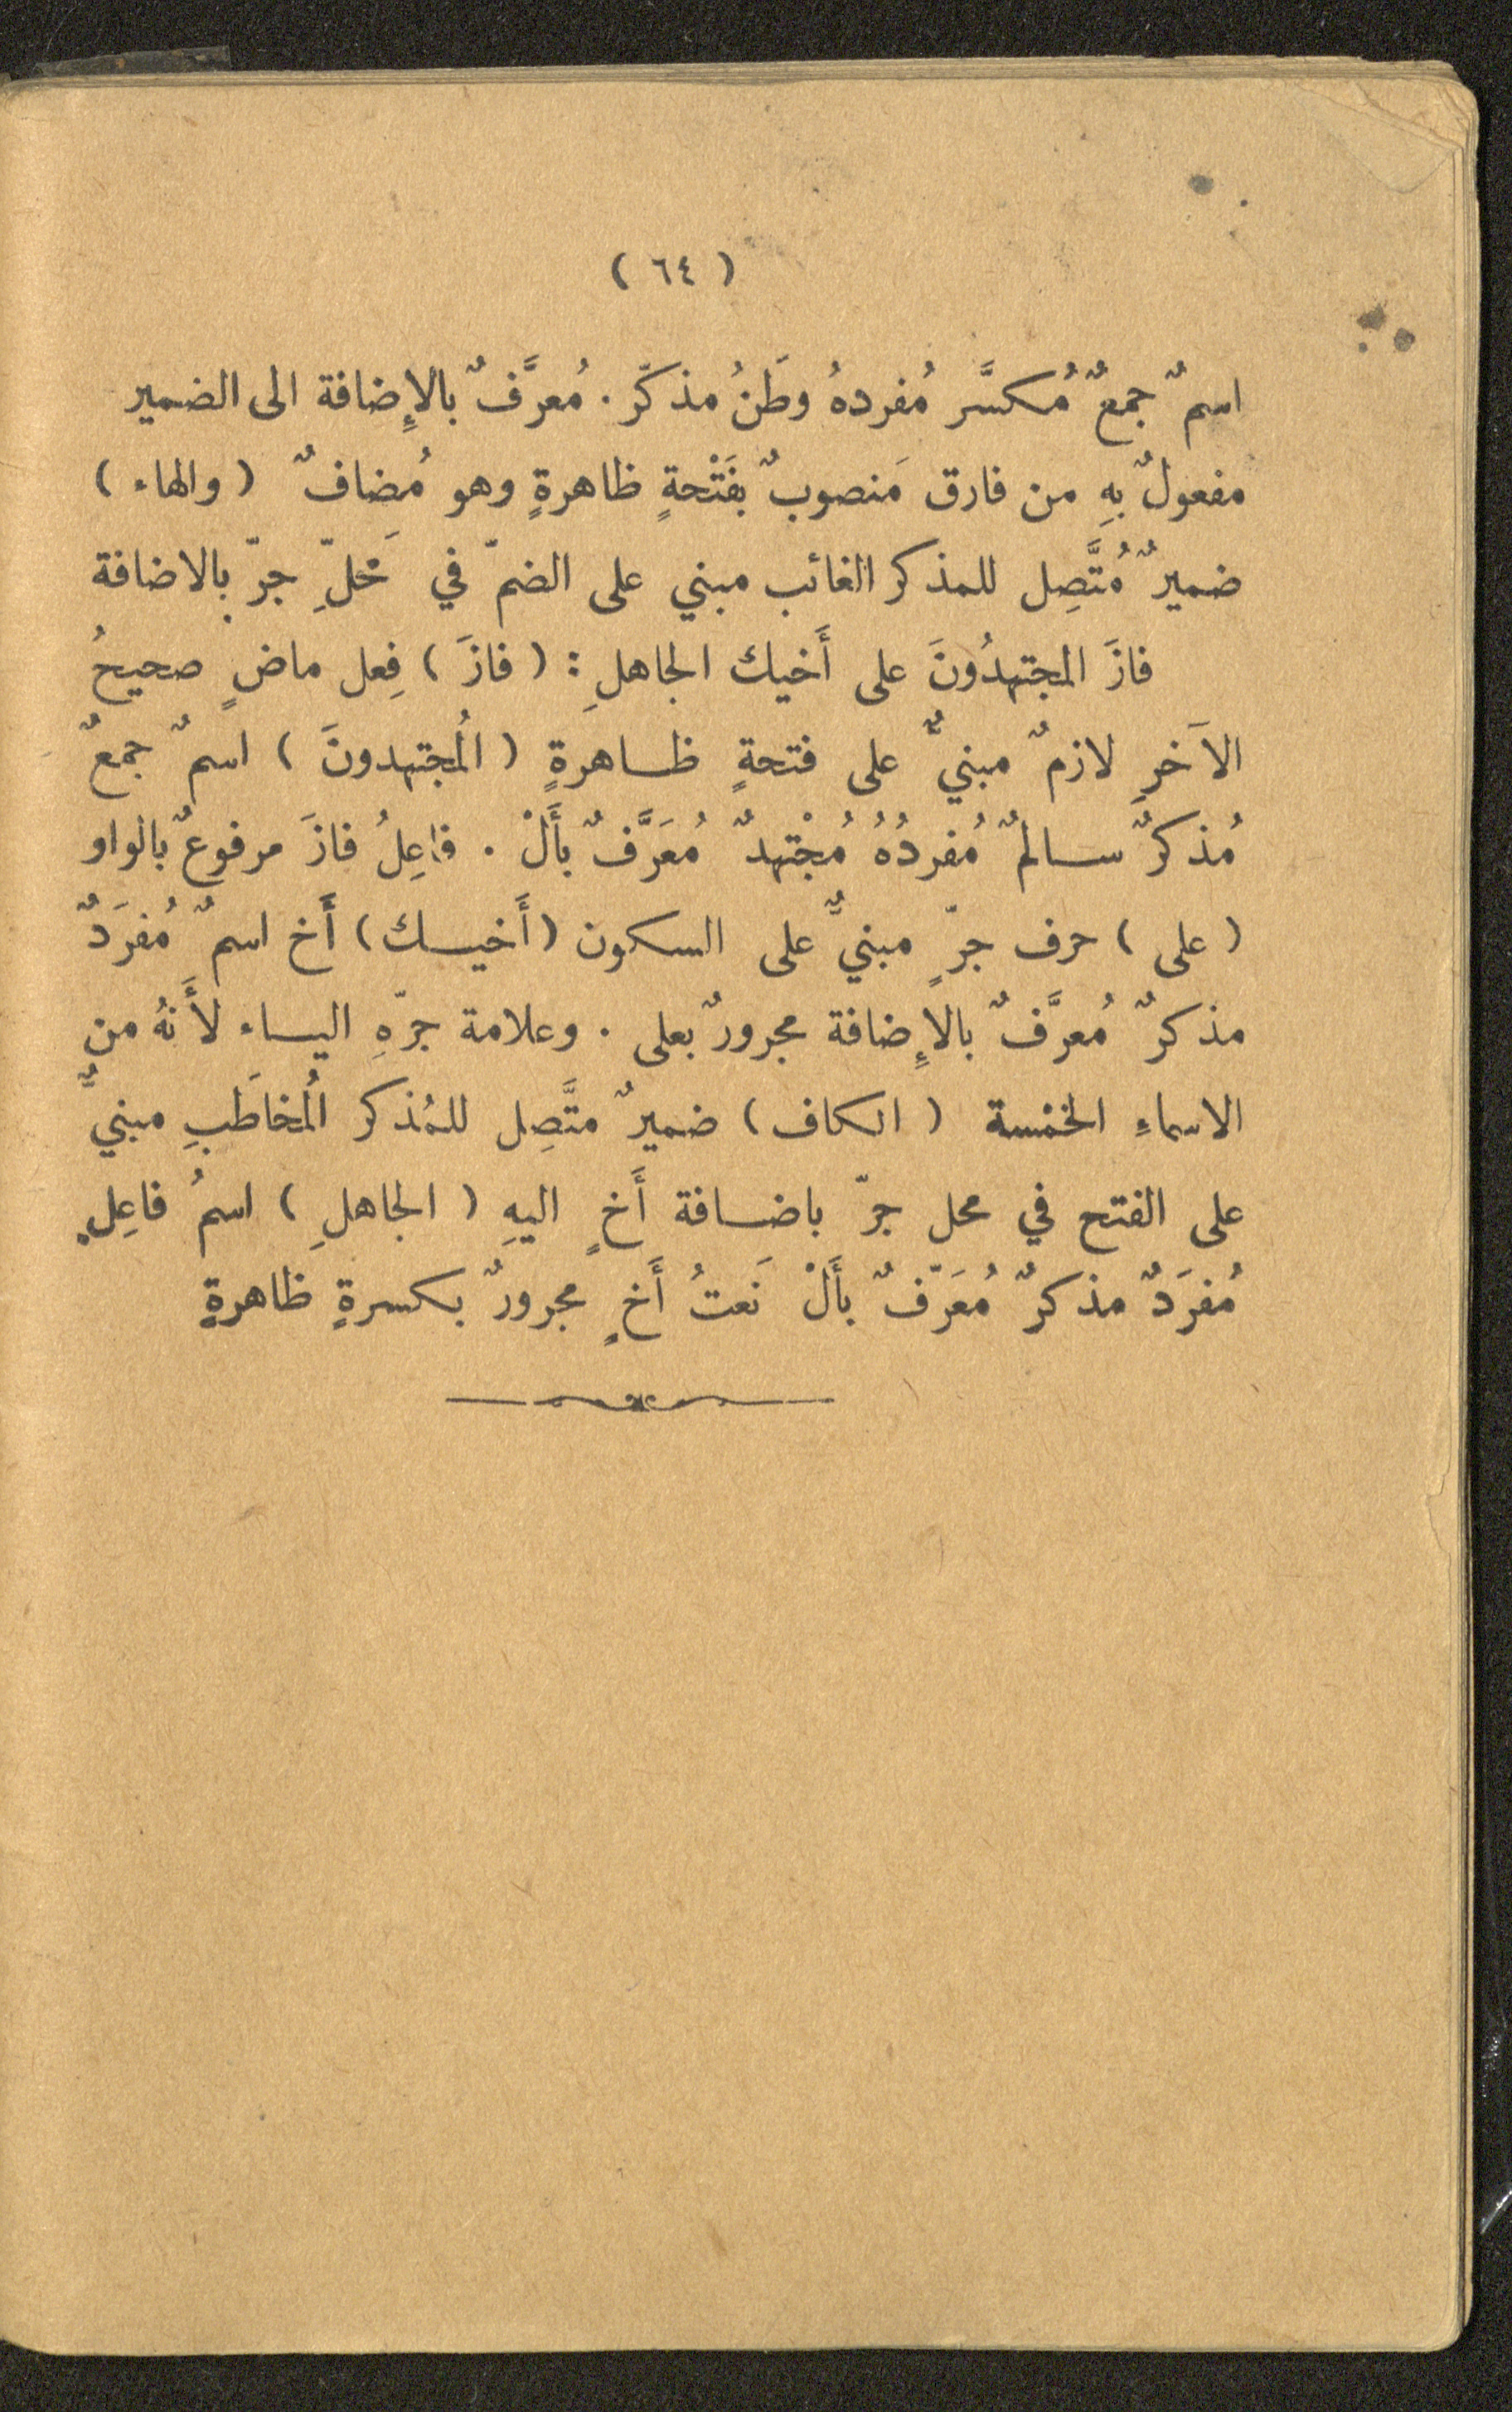 ( ٦٤ )
اسمٌ جمعٌ مُكسَّر مُفردهُ وطَنُ مذكّر . مُعرَّفٌ بالإِضافة الى الضمير
مفعولٌ بهِ من فارق مَنصوبٌ بفَتْحةٍ ظاهرةٍ وهو مُضافٌ ( والهاء )
ضميرٌ مُتَّصِل للمذكر الغائب مبني على الضمّ في مَحلّ جرّ بالاضافة
فازَ المجتهدُونَ على أَخيك الجاهلِ : ( فازَ ) فِعل ماضٍ صحيحُ
الآخرِ لازمٌ مبنيٌّ على فتحةٍ ظـاهرةٍ ( المُجتهدونَ ) اسمٌ جمعٌ
مُذكرٌ سـالمٌ مُفردُهُ مُجْتهدٌ مُعَرَّفٌ بأَلْ . فاعِلُ فازَ مرفوعٌ بالواو
( على ) حرف جرّ مبنيٌّ على السكون ( أَخيـك ) أَخ اسمٌ مُفرَدٌ
مذكرٌ مُعرَّفٌ بالإِضافة مجرورٌ بعلى . وعلامة جرّهِ اليـاء لأَنهُ من
الاسماءِ الخمْسة ( الكاف ) ضميرٌ متَّصِل للمُذكر المُخاطَبِ مبنيٌّ
على الفتح في محل جرّ باضـافة أَخٍ اليهِ ( الجاهلِ ) اسمُ فاعِلٍ
مُفرَدٌ مذكرٌ مُعَرّفٌ بأَلْ نَعتُ أَخٍ مجرورٌ بكسرةٍ ظاهرةٍ